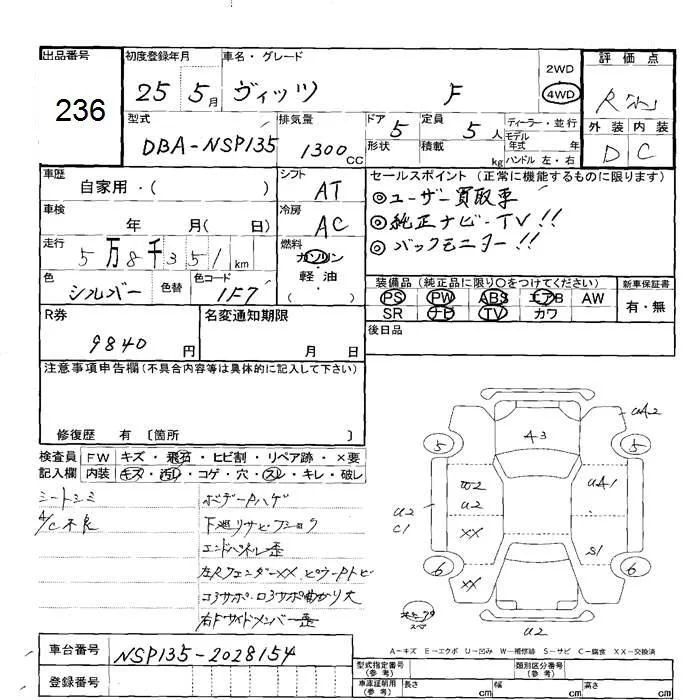 出品番号
236
初度登録年月
25 5月
車名・グレード
ヴィッツ F
2WD
4WD
評価点
R
外装 内装
D C
型式
DBA-NSP135
排気量
1300CC
ドア 5
形状
定員 5人
積載 kg
ディーラー・並行
モデル年式 年
ハンドル 左・右
車歴
自家用・( )
シフト
AT
車検
年 月( 日)
冷房
AC
走行
5万8千351km
燃料
ガソリン・軽油・( )
色
シルバー
色替
色コード
1F7
セールスポイント(正常に機能するものに限ります)
◎ユーザー買取車
◎純正ナビ・TV!!
◎バックモニター!!
装備品(純正品に限り○をつけてください)
PS PW ABS エアB AW
SR ナビ TV カワ
新車保証書
有・無
後日品
R券
9840円
名変通知期限
月 日
注意事項申告欄(不具合内容等は具体的に記入して下さい)
修復歴 有 〔箇所 〕
検査員記入欄
FW キズ・飛石・ヒビ割・リペア跡・×要
内装 キズ・汚レ・コゲ・穴・スレ・キレ・破レ
シートシミ
A/C不良
ボデーPハゲ
下廻りサビ・フショク
エンドパネル歪
左Rフェンダー××
コアサポ・ロアサポ曲がり大
右Fサイドメンバー歪
UA2
A3
5
5
W2
U2
UA1
U2
C1
XX
S1
6
6
XX
スペア
U2
A-キズ E-エクボ U-凹み W-補修跡 S-サビ C-腐食 XX-交換済
車台番号
NSP135-2028154
登録番号
型式指定番号(参考)
類別区分番号(参考)
車庫証明用(参考)
長さ cm
幅 cm
高さ cm